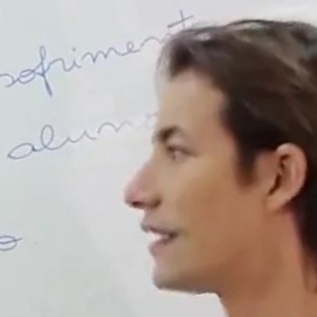 sofriment
alun